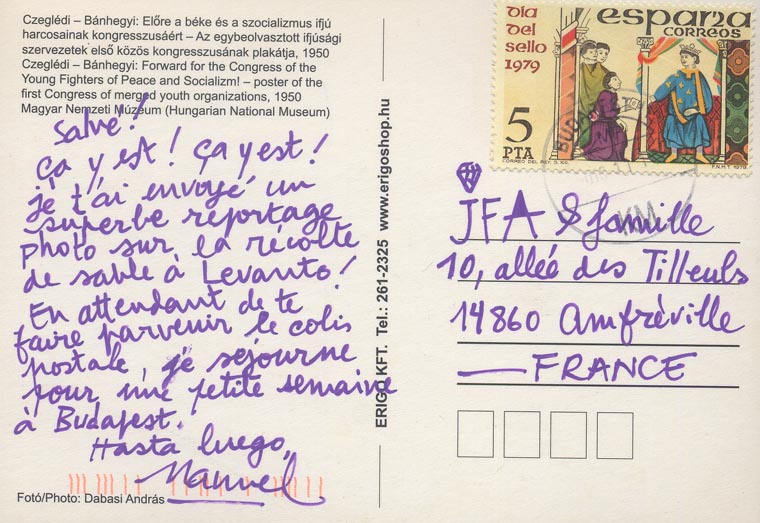 Czeglédi – Bánhegyi: Előre a béke és a szocializmus ifjú
harcosainak kongresszusáért – Az egybeolvasztott ifjúsági
szervezetek első közös kongresszusának plakátja, 1950
Czeglédi – Bánhegyi: Forward for the Congress of the
Young Fighters of Peace and Socializm! – poster of the
first Congress of merged youth organizations, 1950
Magyar Nemzeti Múzeum (Hungarian National Museum)
Salve!
Ça y est! Ça y est!
je t'ai envoyé un
superbe reportage
photo sur la récolte
de sable à Levanto!
En attendant de te
faire parvenir le colis
postale, je séjourne
pour une petite semaine
à Budapest.
Hasta luego,
Manuel
Fotó/Photo: Dabasi András
ERIGO KFT. Tel.: 261-2325 www.erigoshop.hu
dia
del
sello
1979
españa
CORREOS
5
PTA
CORREO DEL REY. S. XIII.
F.N.M.T. 1979
BUDA
KM
JFA & famille
10, allée des Tilleuls
14860 Amfréville
FRANCE